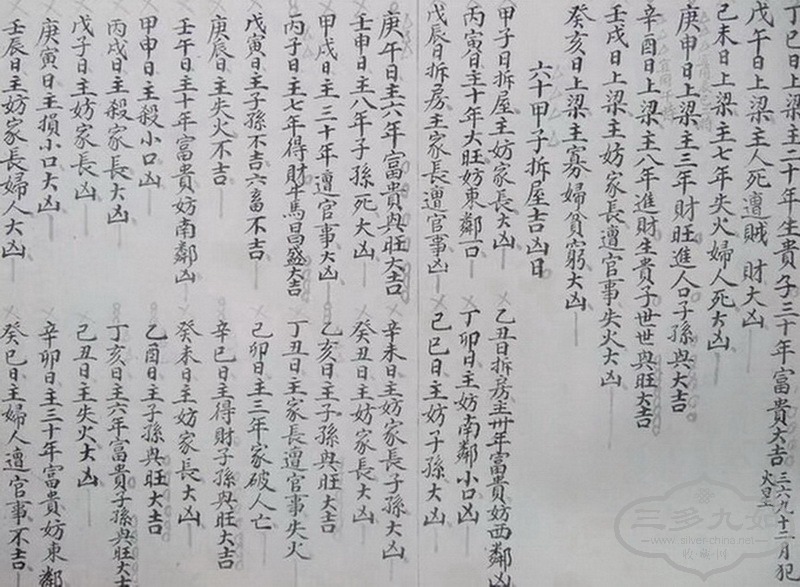 丁巳日上梁主二十年生貴子三十年富貴大吉三六九十二月犯
火星
戊午日上梁主人死遭賊財大凶
己未日上梁主七年失火婦人死大凶
庚申日上梁主三年財旺進人口子孫興大吉
辛酉日上梁主八年進財生貴子世世興旺大吉
壬戌日上梁主妨家長遭官事失火大凶
癸亥日上梁主寡婦貧窮大凶
六十甲子拆屋吉凶日
甲子日拆屋主妨家長大凶
乙丑日拆房主卅年富貴妨西鄰凶
丙寅日主十年大旺妨東鄰一口
丁卯日主妨南鄰小口凶
戊辰日拆房主家長遭官事凶
己巳日主妨子孫大凶
庚午日主六年富貴興旺大吉
辛未日主妨家長子孫大凶
壬申日主八年子孫死大凶
癸丑日主妨家長大凶
甲戌日主三十年遭官事大凶
乙亥日主子孫興旺大吉
丙子日主七年得財牛馬昌盛大吉
丁丑日主家長遭官事失火
戊寅日主子孫不吉六畜不吉
己卯日主三年家破人亡
庚辰日主失火不吉
辛巳日主得財子孫興旺大吉
壬午日主十年富貴妨南鄰凶
癸未日主妨家長大凶
甲申日主殺小口凶
乙酉日主子孫興旺大吉
丙戌日主殺家長大凶
丁亥日主六年富貴子孫興旺大吉
戊子日主妨家長凶
己丑日主失火大凶
庚寅日主損小口大凶
辛卯日主三十年富貴妨東鄰
壬辰日主妨家長婦人大凶
癸巳日主婦人遭官事不吉
三多九如
www.silver-china.net
收藏网